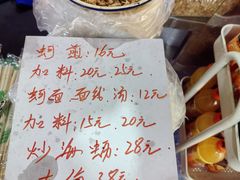 蚵煎:16元
加料:20元.25元.
蚵面 面线.汤:12元
加料:15元.20元
炒海蛎:28元
38元